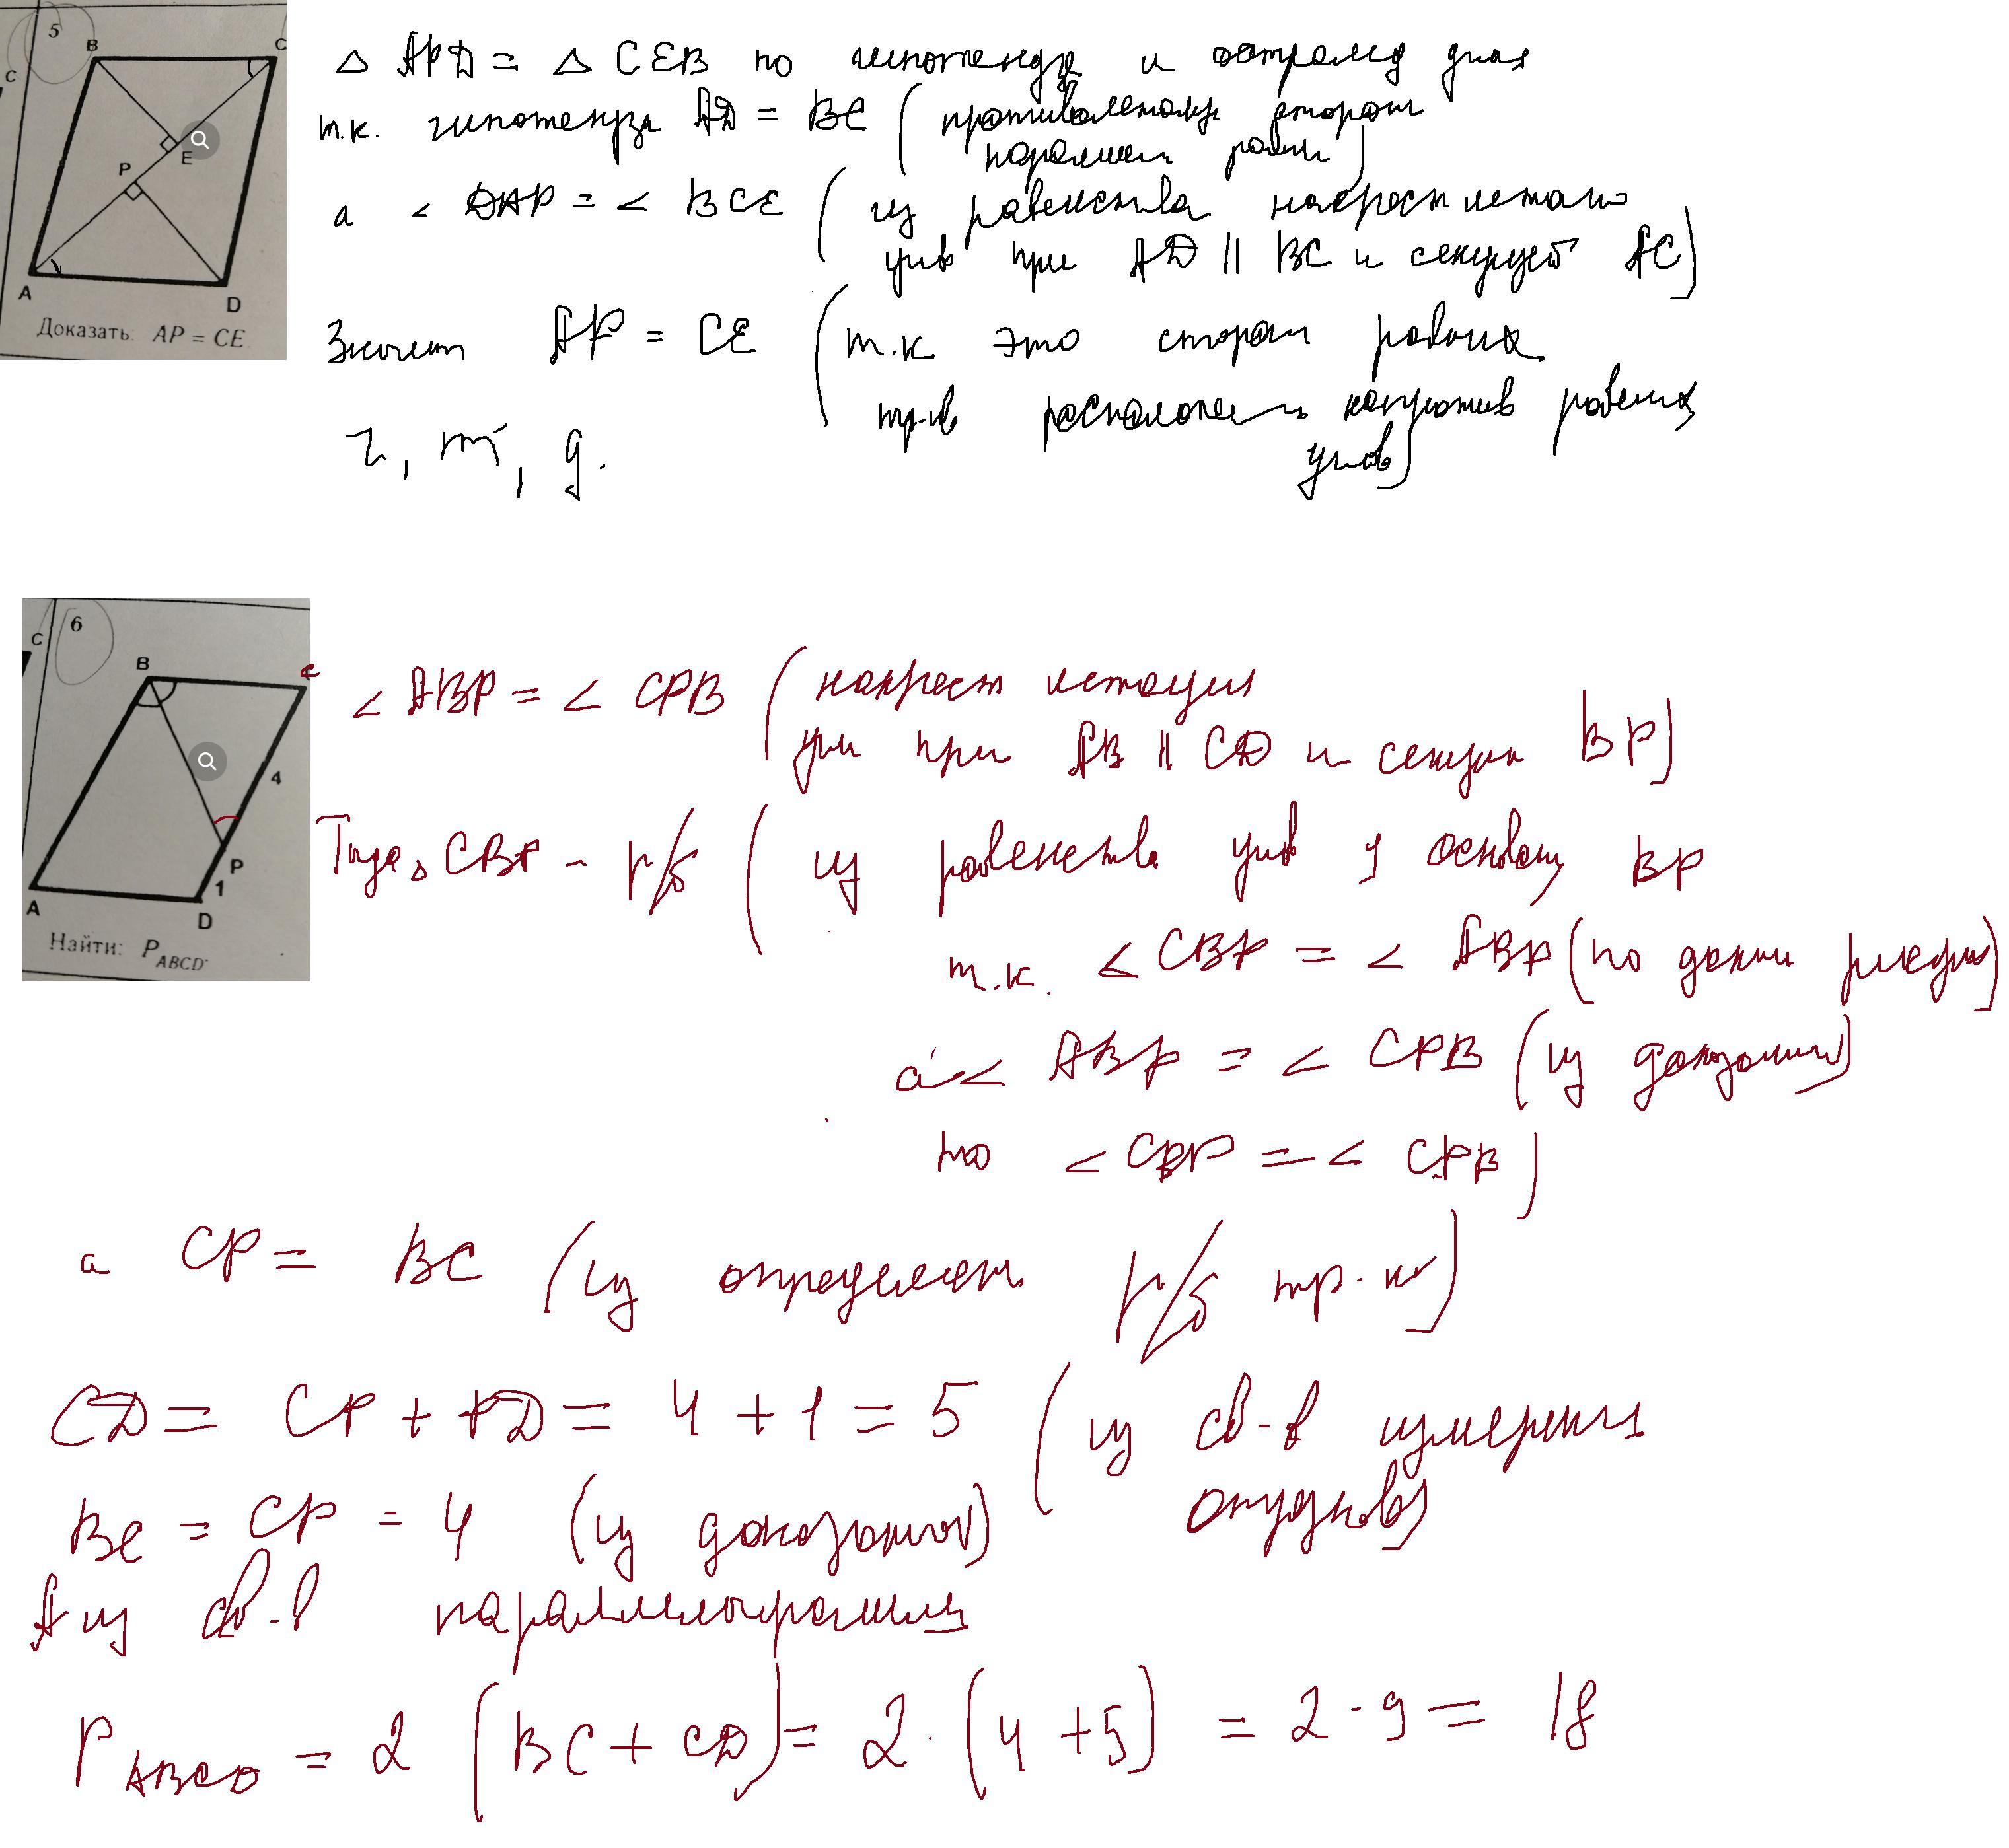 5
B
C
C
P
E
A
D
Доказать: AP = CE.
△ APD = △ CEB по гипотенузе и острому углу
т.к. гипотенуза AD = BC (противолежащие стороны
паралел равны)
а < DAP = < BCE (из равенства накрест лежащих
углов при AD || BC и секущей AC)
Значит AP = CE (т.к это сторон равных
тр-ов расположены напротив равных
углов)
ч, т, д.
6
C
B
C
4
P
1
A
D
Найти: P_ABCD.
< ABP = < CPB (накрест лежащие
углы при AB || CD и секущей BP)
Тогда △ CBP - р/б (из равенства углов у основан BP
т.к. < CBP = < ABP (по данным рисунка)
а < ABP = < CPB (из доказанного)
то < CBP = < CPB)
а CP = BC (из определения р/б тр-ка)
CD = CP + PD = 4 + 1 = 5 (из св-в измерения
отрезков)
BC = CP = 4 (из доказанного)
А из св-в параллелограмма
P ABCD = 2 (BC + CD) = 2 · (4 + 5) = 2 · 9 = 18